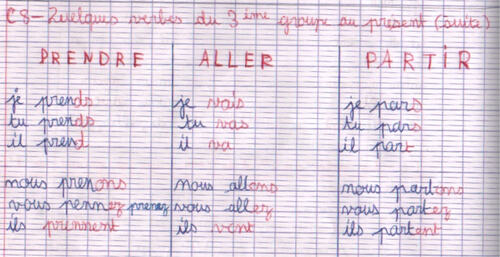 C8-Quelques verbes du 3ème groupe au présent (suite)
PRENDRE ALLER PARTIR
je prends je vais je pars
tu prends tu vas tu pars
il prent il va il part
nous prenons nous allons nous partons
vous pennez prenez vous allez vous partez
ils prennent ils vont ils partent